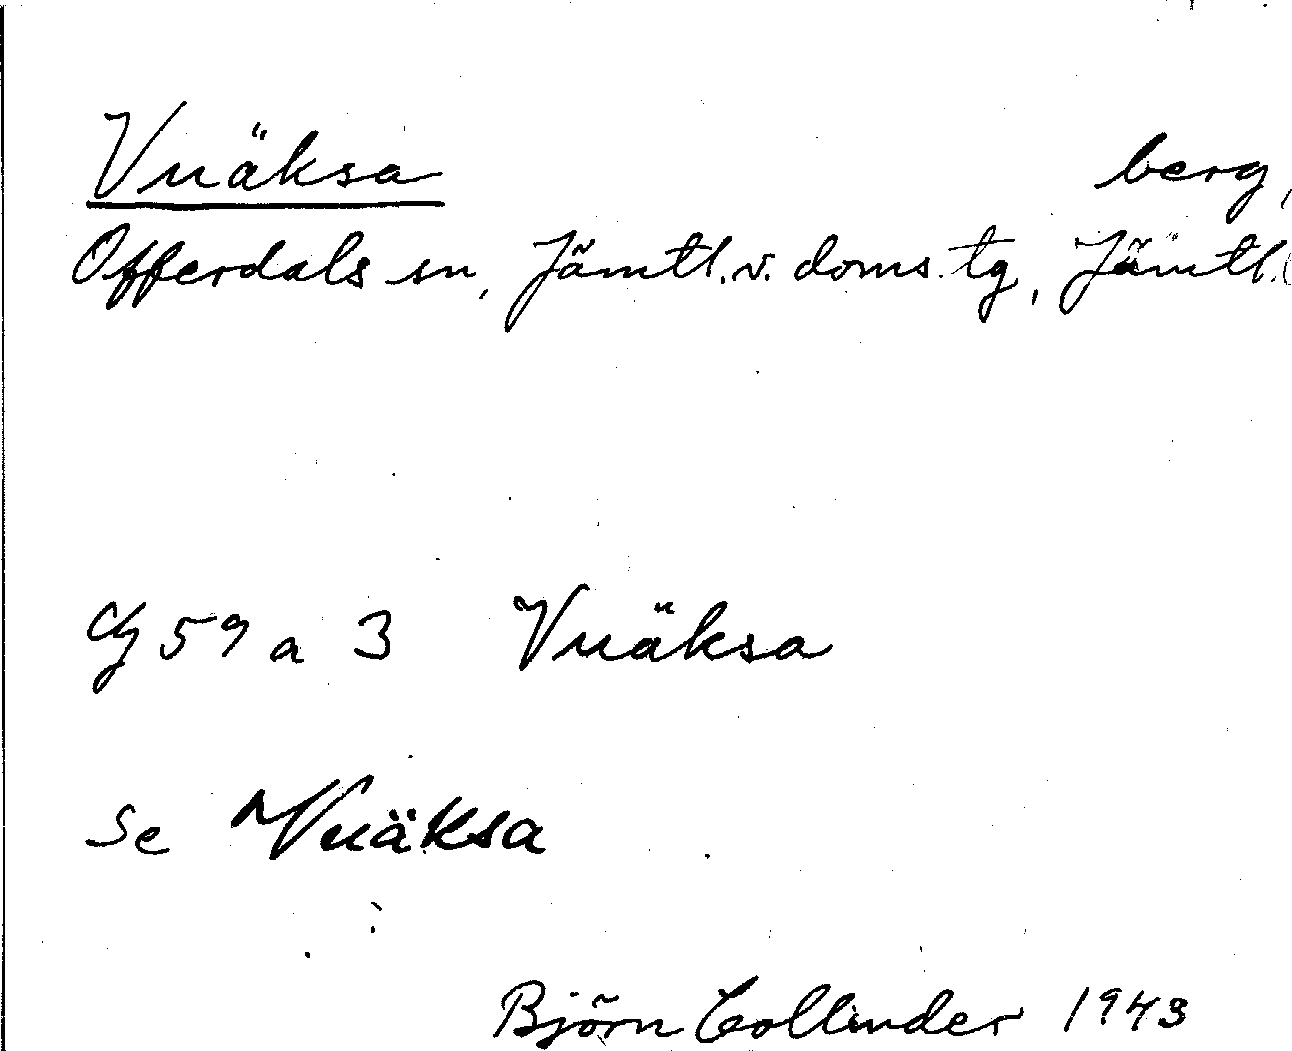 Vuäksa berg,
Offerdals sn, Jämtl.v. doms. tg, Jämtl.
59 a 3 Vuäksa
Se Vuäksa
Björn Collinder 1943